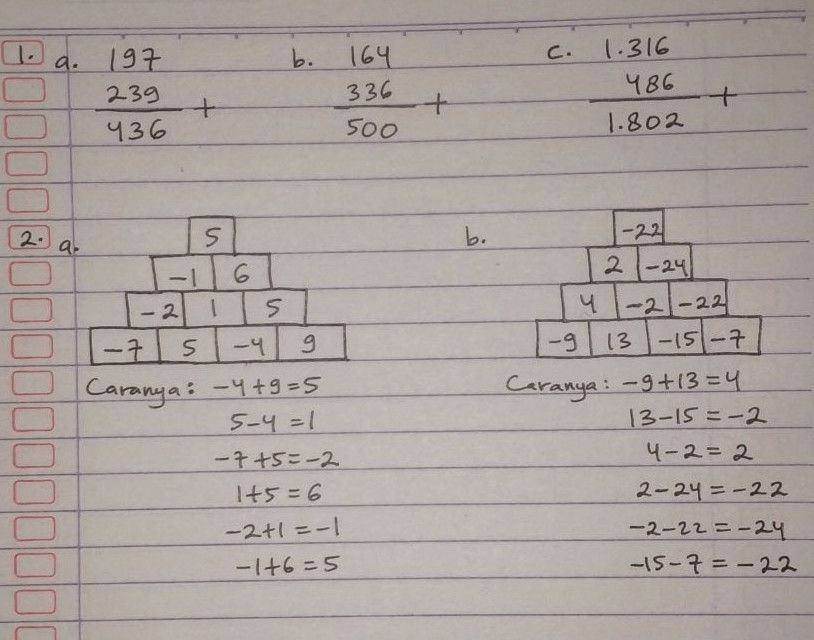 1. a. 197 b. 164 c. 1.316
239 + 336 + 486 +
436 500 1.802
2. a. 5 b. -22
-1 6 2 -24
-2 1 5 4 -2 -22
-7 5 -4 9 -9 13 -15 -7
Caranya: -4+9=5 Caranya: -9+13=4
5-4=1 13-15=-2
-7+5=-2 4-2=2
1+5=6 2-24=-22
-2+1=-1 -2-22=-24
-1+6=5 -15-7=-22